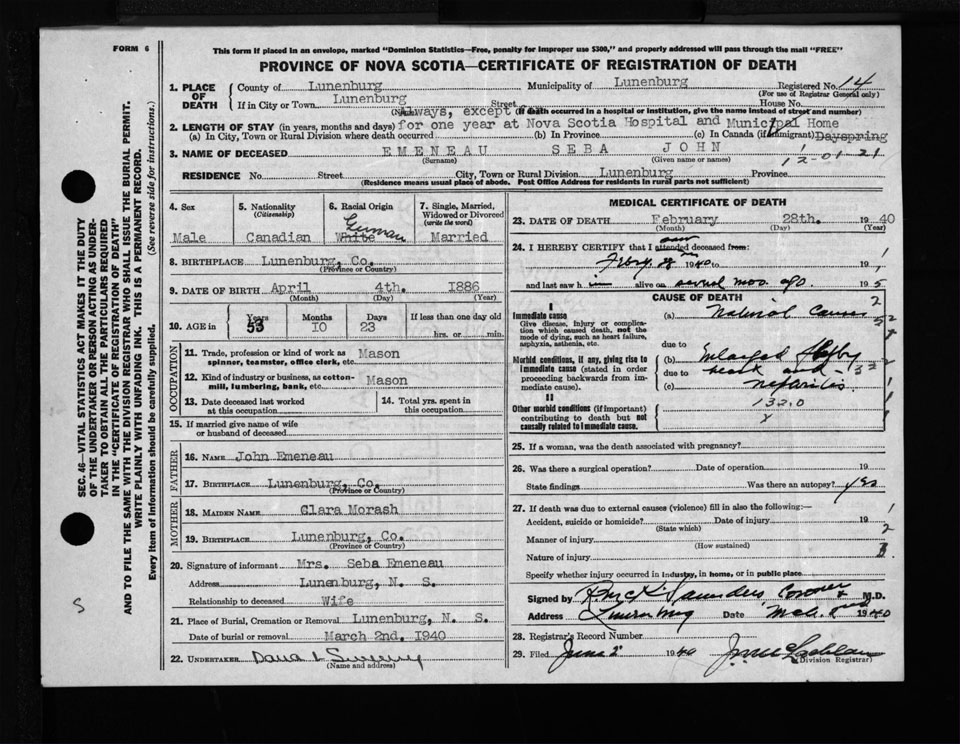 FORM 6
This form if placed in an envelope, marked "Dominion Statistics—Free, penalty for improper use $300," and properly addressed will pass through the mail "FREE"
PROVINCE OF NOVA SCOTIA—CERTIFICATE OF REGISTRATION OF DEATH
1. PLACE OF DEATH County of Lunenburg Municipality of Lunenburg Registered No. 14
(For use of Registrar General only)
If in City or Town Lunenburg Street House No.
(If death occurred in a hospital or institution, give the name instead of street and number)
Always, except
2. LENGTH OF STAY (in years, months and days) for one year at Nova Scotia Hospital and Municipal Home
(a) In City, Town or Rural Division where death occurred (b) In Province (c) In Canada (if immigrant) Dayspring
3. NAME OF DECEASED EMENEAU SEBA JOHN
(Surname) (Given name or names) 12-01-21
RESIDENCE No. Street City, Town or Rural Division Lunenburg Province
(Residence means usual place of abode. Post Office Address for residents in rural parts not sufficient)
4. Sex Male
5. Nationality (Citizenship) Canadian
6. Racial Origin German White
7. Single, Married, Widowed or Divorced (write the word) Married
8. BIRTHPLACE Lunenburg, Co.
(Province or Country)
9. DATE OF BIRTH April 4th. 1886
(Month) (Day) (Year)
10. AGE in Years 53 Months 10 Days 23 If less than one day old
hrs. or min.
OCCUPATION
11. Trade, profession or kind of work as spinner, teamster, office clerk, etc. Mason
12. Kind of industry or business, as cotton-mill, lumbering, bank, etc. Mason
13. Date deceased last worked at this occupation
14. Total yrs. spent in this occupation
15. If married give name of wife or husband of deceased
FATHER
16. NAME John Emeneau
17. BIRTHPLACE Lunenburg, Co.
(Province or Country)
MOTHER
18. MAIDEN NAME Clara Morash
19. BIRTHPLACE Lunenburg, Co.
(Province or Country)
20. Signature of informant Mrs. Seba Emeneau
Address Lunenburg, N. S.
Relationship to deceased Wife
21. Place of Burial, Cremation or Removal Lunenburg, N. S.
Date of burial or removal March 2nd. 1940
22. UNDERTAKER
(Name and address)
MEDICAL CERTIFICATE OF DEATH
23. DATE OF DEATH February 28th. 1940
(Month) (Day) (Year)
24. I HEREBY CERTIFY that I saw attended deceased from:
1940 to 19
and last saw h im alive on several mos. ago 19
CAUSE OF DEATH
I
Immediate cause
Give disease, injury or complication which caused death, not the mode of dying, such as heart failure, asphyxia, asthenia, etc.
(a) Natural Causes
due to
Morbid conditions, if any, giving rise to immediate cause (stated in order proceeding backwards from immediate cause).
(b) Enlarged flabby
due to heart and
(c) nephritis
II
Other morbid conditions (if important) contributing to death but not causally related to immediate cause.
132.0
x
25. If a woman, was the death associated with pregnancy?
26. Was there a surgical operation? Date of operation 19
State findings Was there an autopsy? yes
27. If death was due to external causes (violence) fill in also the following:—
Accident, suicide or homicide? Date of injury 19
(State which)
Manner of injury
(How sustained)
Nature of injury
Specify whether injury occurred in industry, in home, or in public place
Signed by Saunders Coroner M.D.
Address Lunenburg Date 1940
28. Registrar's Record Number
29. Filed June 1940
(Division Registrar)
SEC. 46—VITAL STATISTICS ACT MAKES IT THE DUTY
OF THE UNDERTAKER OR PERSON ACTING AS UNDER-
TAKER TO OBTAIN ALL THE PARTICULARS REQUIRED
IN THE "CERTIFICATE OF REGISTRATION OF DEATH"
AND TO FILE THE SAME WITH THE DIVISION REGISTRAR WHO SHALL ISSUE THE BURIAL PERMIT.
WRITE PLAINLY WITH UNFADING INK. THIS IS A PERMANENT RECORD.
Every item of information should be carefully supplied. (See reverse side for instructions.)
S